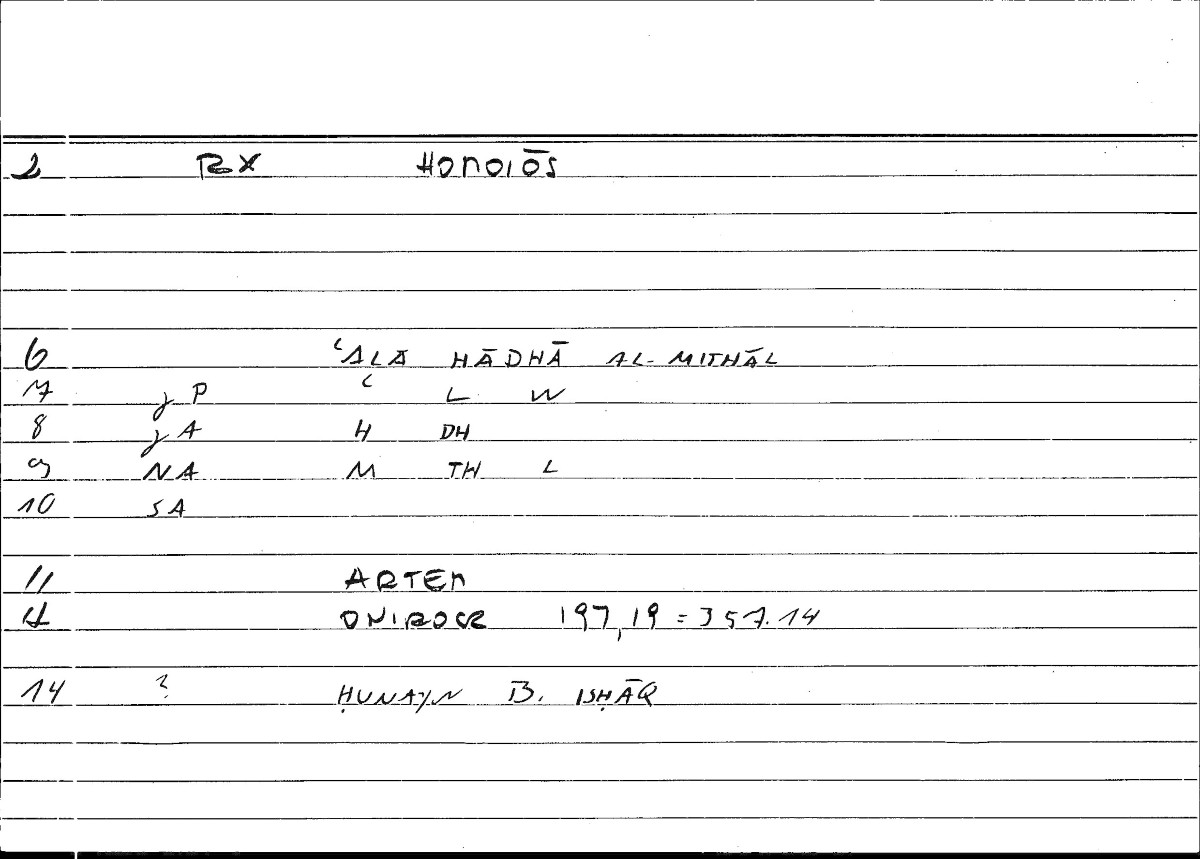 2 BX HOMOIŌS
6 ʿALĀ HĀDHĀ AL-MITHĀL
7 jP ʿ L W
8 jA H DH
9 NA M TH L
10 SA
11 ARTEM
12 ONIROCR 197,19 = 357.14
14 ? ḤUNAYN B. ISḤĀQ